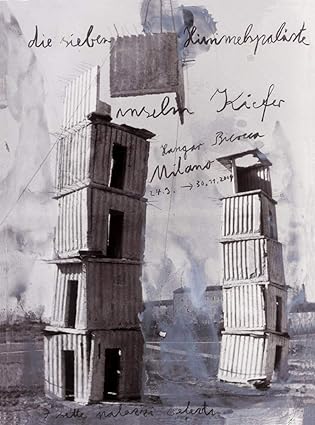 die sieben Himmelspaläste
anselm Kiefer
Hangar Bicocca
Milano
24.9. → 30.11.2004
I sette palazzi celesti